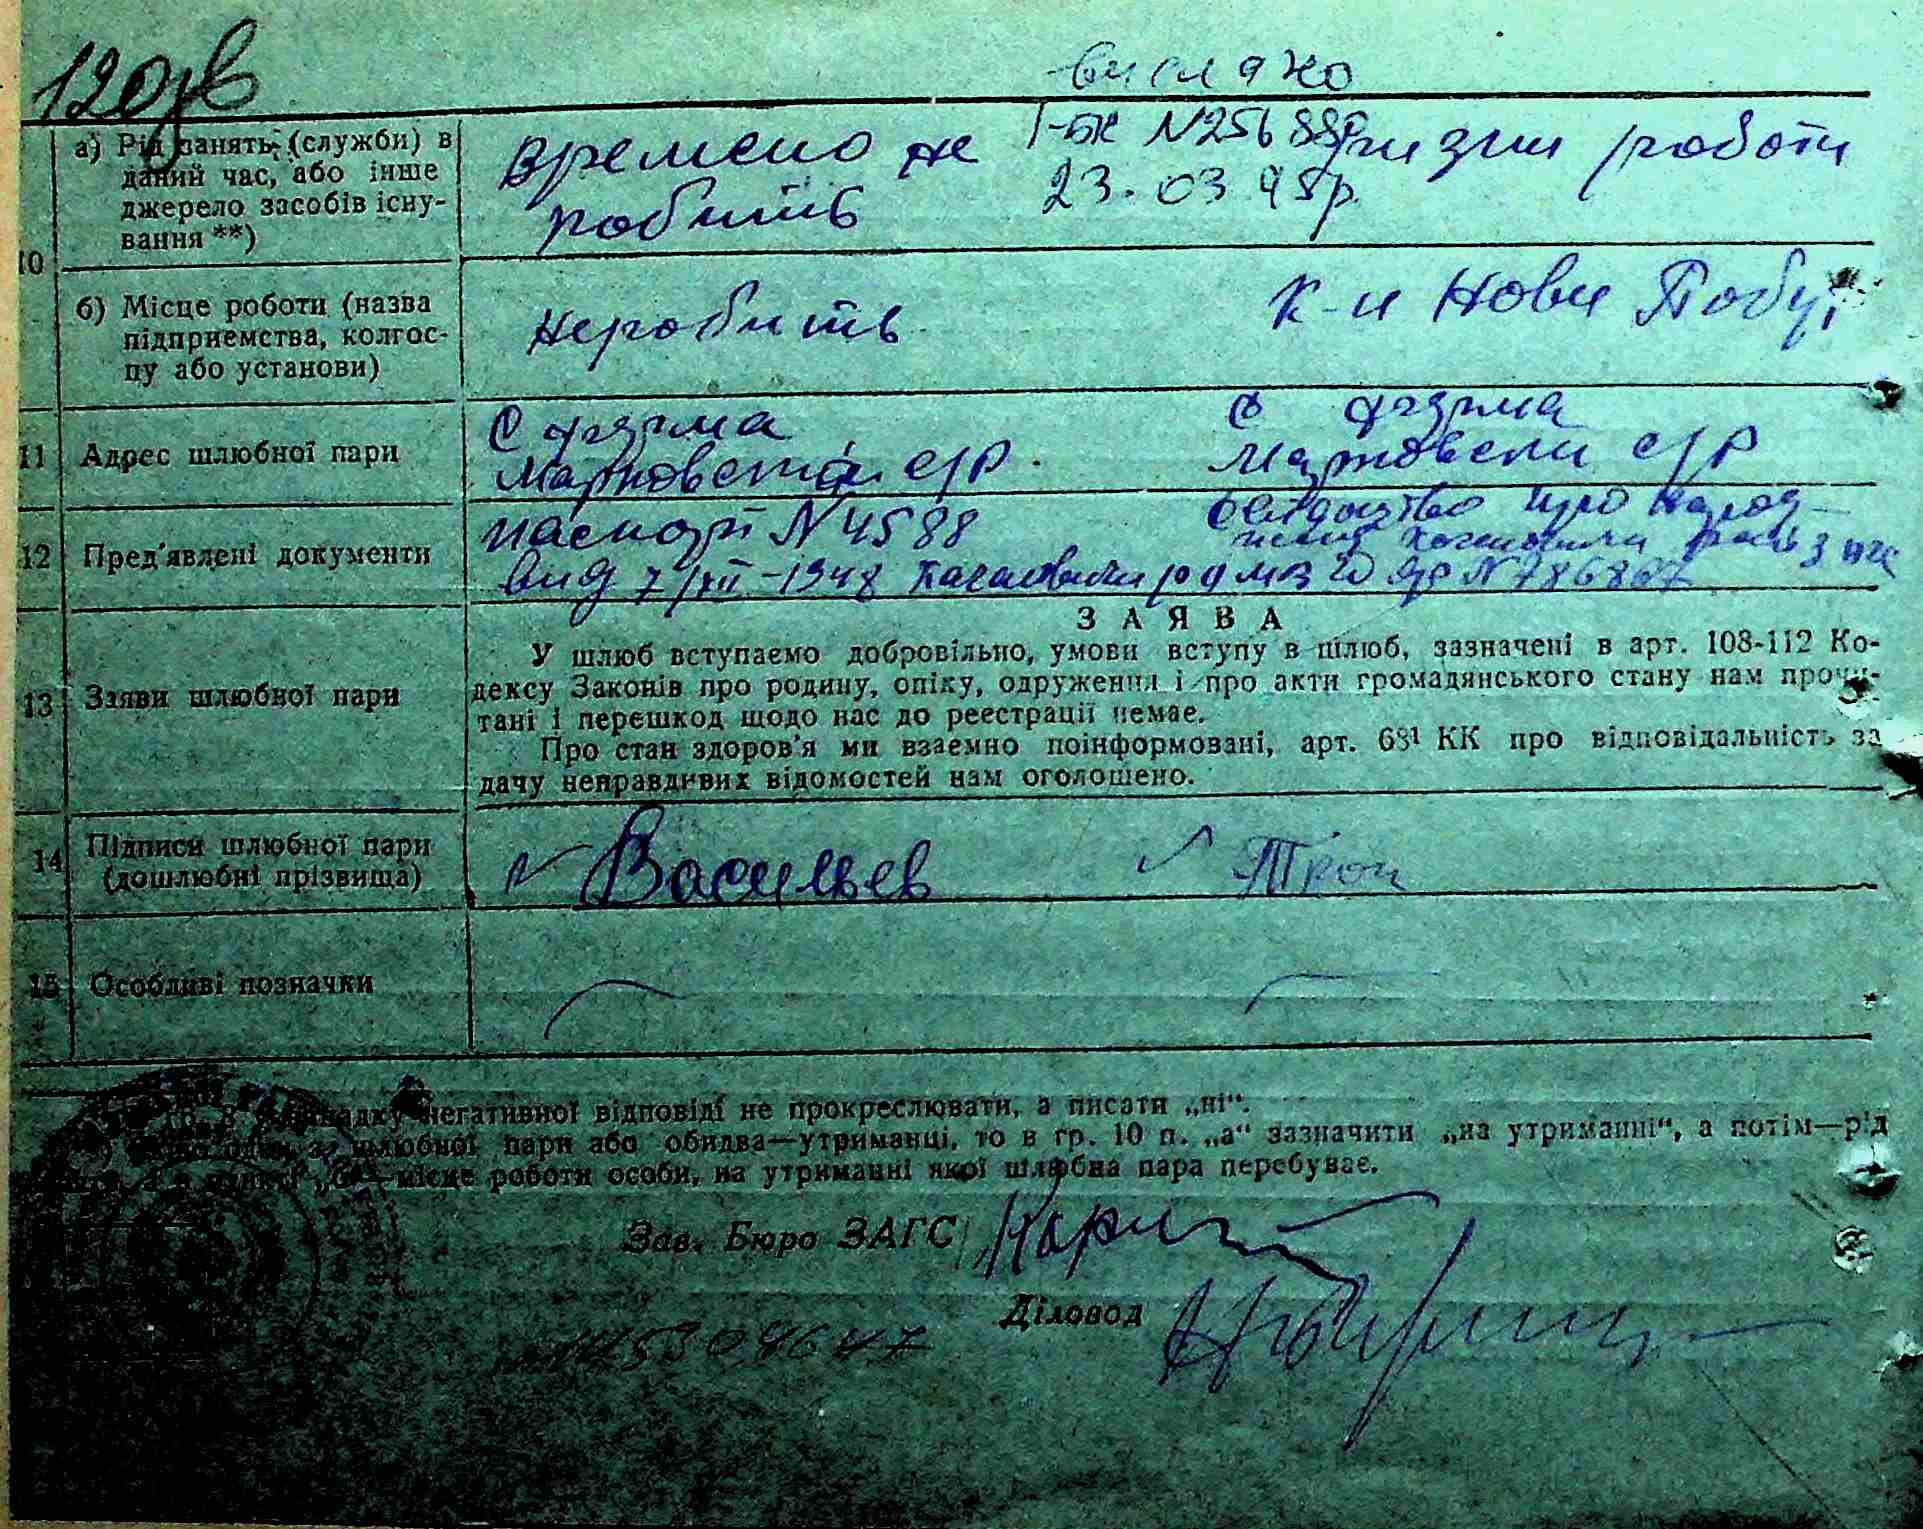 120 зв
вислано
І-БК N256889
23.03.95р.
10
а) Рід занять (служби) в
даний час, або інше
джерело засобів існу-
вання **)
времено не
робить
різни роботи
б) Місце роботи (назва
підприємства, колгос-
пу або установи)
не робить
К-п Нови Побут
11 Адрес шлюбної пари
С ферма
Марковской С/Р
с ферма
Марковски С/Р
12 Пред'явлені документи
паспорт N 4588
вид 7/XII-1948
N 786867
13 Заяви шлюбної пари
ЗАЯВА
У шлюб вступаємо добровільно, умови вступу в шлюб, зазначені в арт. 108-112 Ко-
дексу Законів про родину, опіку, одруження і про акти громадянського стану нам прочи-
тані і перешкод щодо нас до реєстрації немає.
Про стан здоров'я ми взаємно поінформовані, арт. 68¹ КК про відповідальність за
дачу неправдивих відомостей нам оголошено.
14 Підписи шлюбної пари
(дошлюбні прізвища)
Васильев
Трои
15 Особливі позначки
негативної відповіді не прокреслювати, а писати „ні“.
шлюбної пари або обидва—утриманці, то в гр. 10 п. „а“ зазначити „на утриманні“, а потім—рід
місце роботи особи, на утриманні якої шлюбна пара перебуває.
Зав. Бюро ЗАГС
Діловод